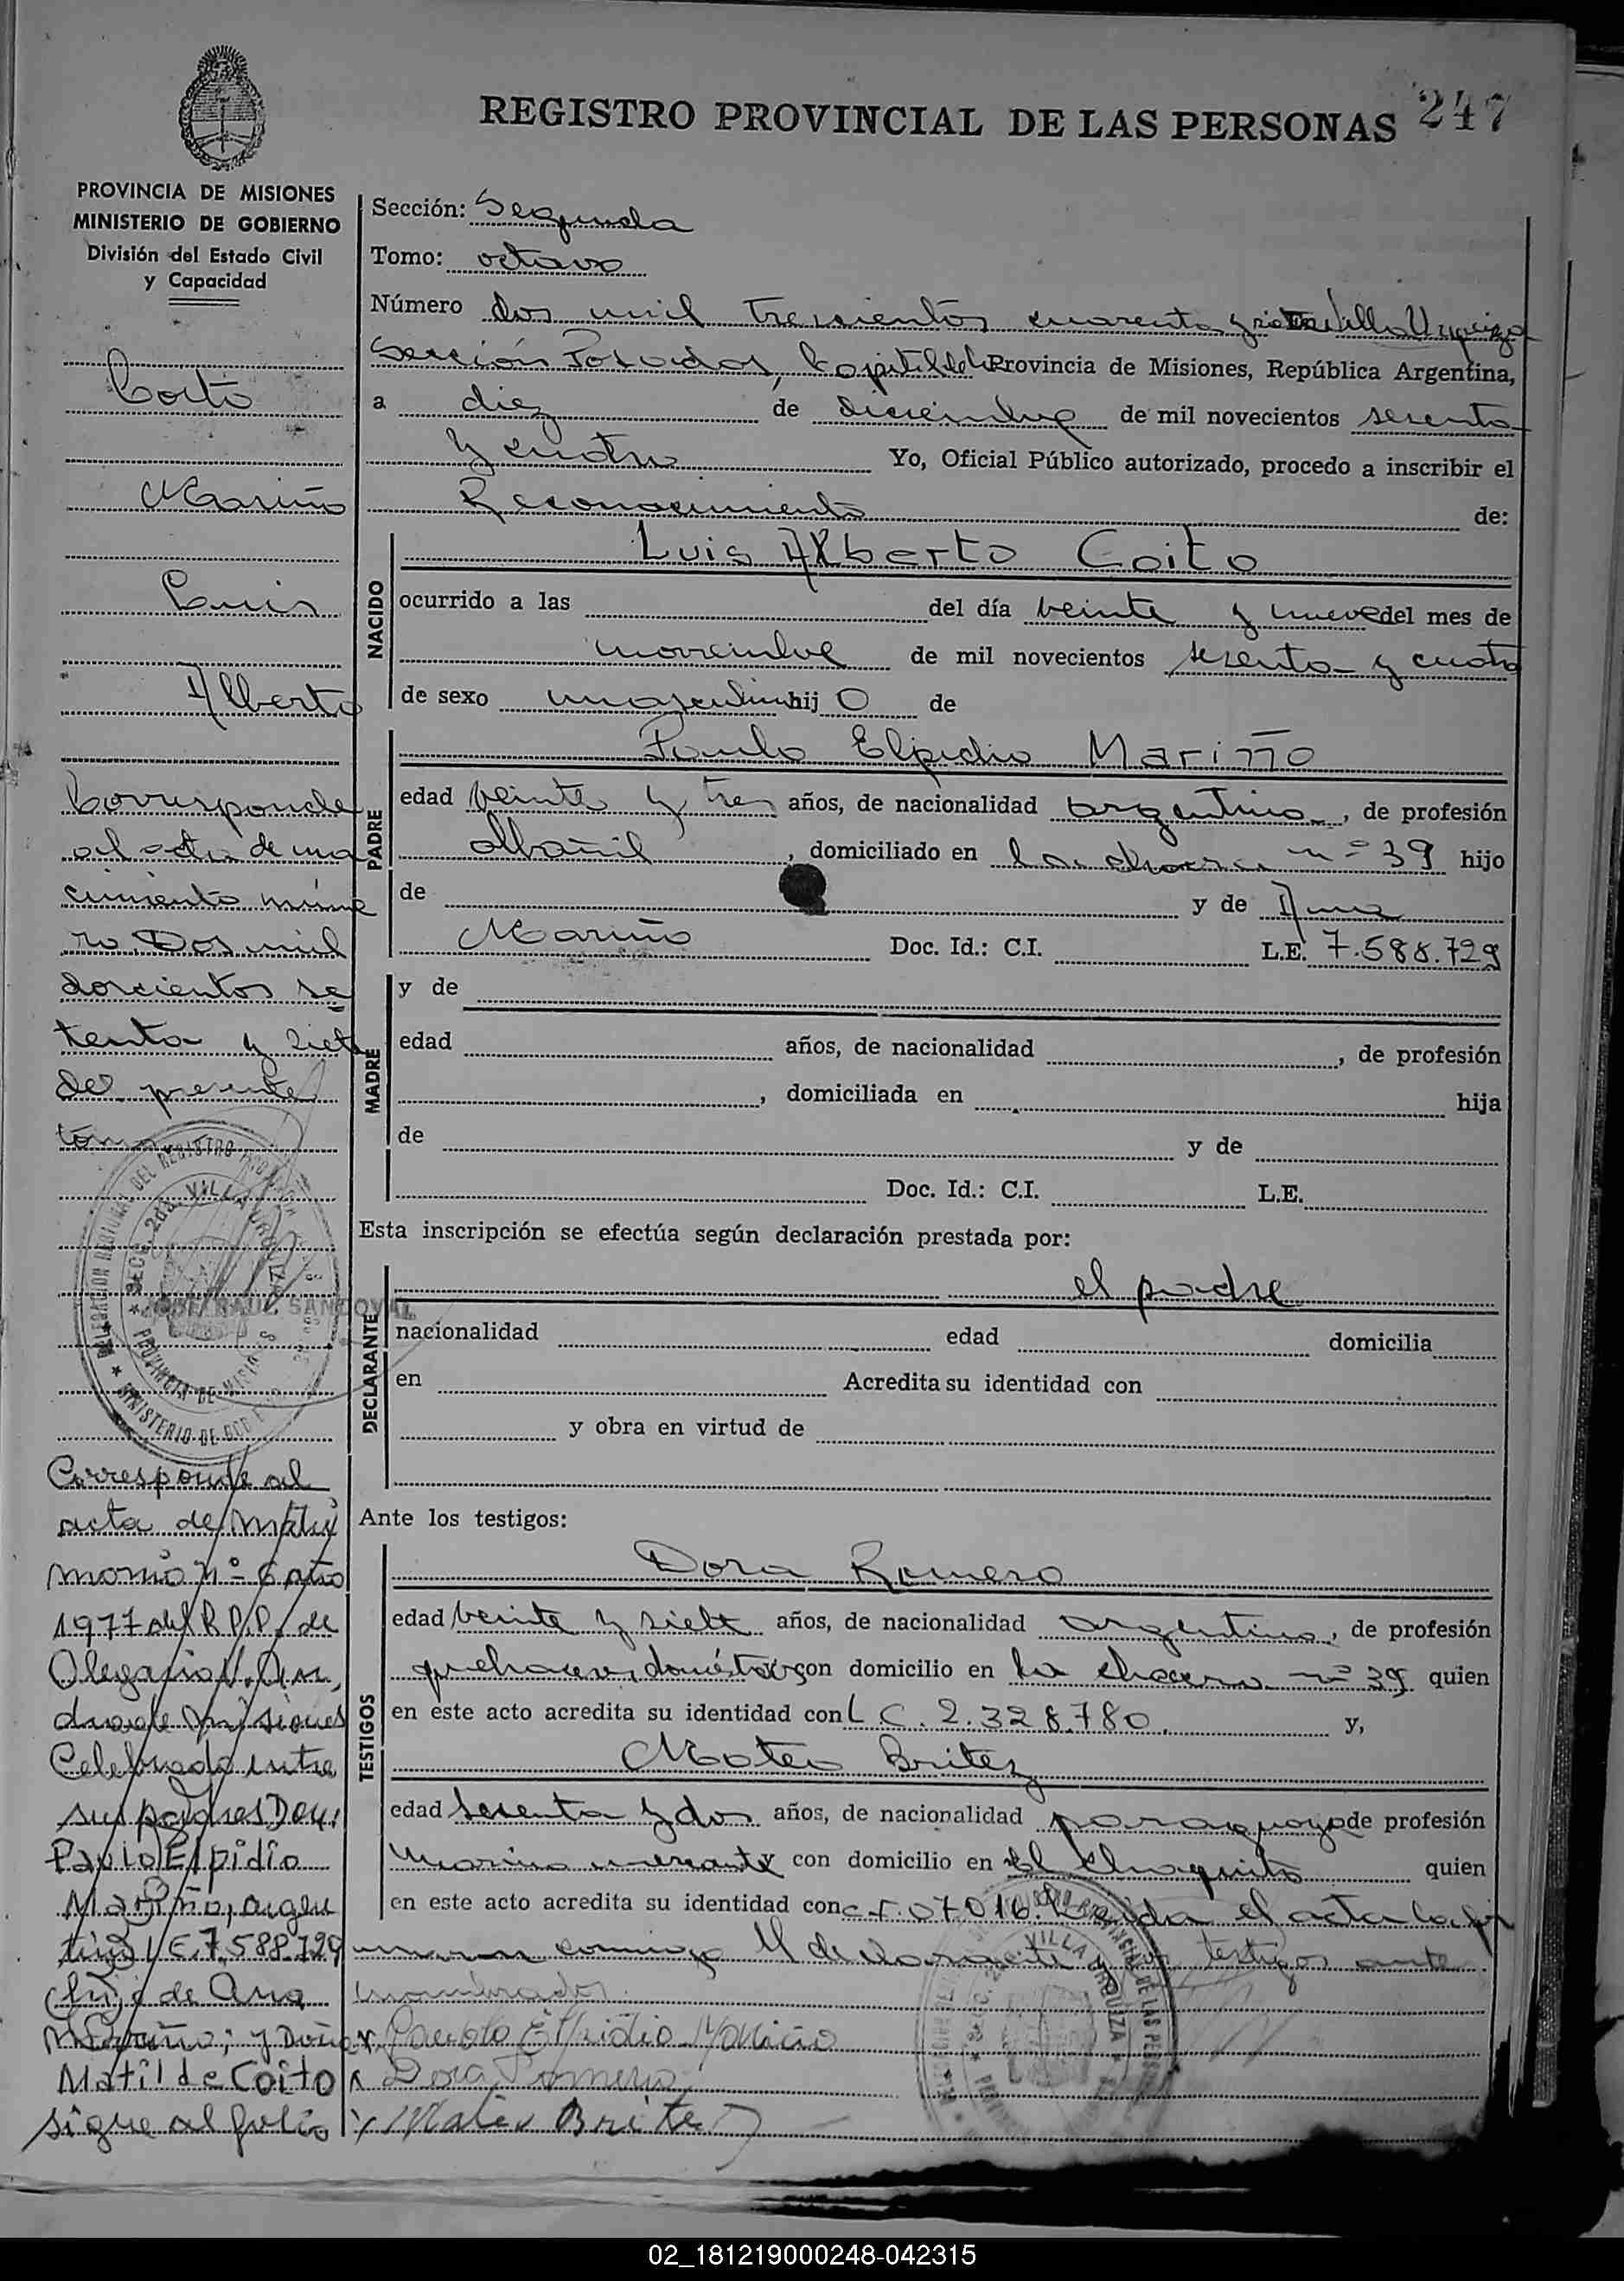 REGISTRO PROVINCIAL DE LAS PERSONAS 247
PROVINCIA DE MISIONES
MINISTERIO DE GOBIERNO
División del Estado Civil
y Capacidad
Coito
Mariño
Luis
Alberto
Corresponde
al acta de na
cimiento núme
ro Dos mil
doscientos se
tenta y siete
del presente
tomo
DELEGACION REGIONAL DEL REGISTRO PROVINCIAL
SECC. 2da. VILLA URQUIZA
PROVINCIA DE MISIONES
MINISTERIO DE GOBIERNO
JOSE RAUL SANDOVAL
Corresponde al
acta de matri
monio Nº 6 año
1977 del R.P.P. de
Olegario V. An
drade Misiones
Celebrado entre
sus padres Don:
Paulo Elpidio
Mariño, argen
tino L.E. 7.588.729
hijo de Ana
Mariño; y Doña
Matilde Coito
sigue al folio
Sección: Segunda
Tomo: octavo
Número dos mil trescientos cuarenta y siete Villa Urquiza
Sección Posadas, Capital de la Provincia de Misiones, República Argentina,
a diez de diciembre de mil novecientos sesenta
y cuatro Yo, Oficial Público autorizado, procedo a inscribir el
Reconocimiento de:
NACIDO
Luis Alberto Coito
ocurrido a las del día veinte y nueve del mes de
noviembre de mil novecientos sesenta y cuatro
de sexo masculino hij o de
PADRE
Paulo Elpidio Mariño
edad veinte y tres años, de nacionalidad argentino, de profesión
albañil, domiciliado en la chacra nº 39 hijo
de y de Ana
Mariño Doc. Id.: C.I. L.E. 7.588.729
MADRE
y de
edad años, de nacionalidad , de profesión
, domiciliada en hija
de y de
Doc. Id.: C.I. L.E.
Esta inscripción se efectúa según declaración prestada por:
DECLARANTE
el padre
nacionalidad edad domicilia
en Acredita su identidad con
y obra en virtud de
Ante los testigos:
TESTIGOS
Dora Romero
edad veinte y siete años, de nacionalidad argentina, de profesión
quehaceres domésticos con domicilio en la chacra nº 39 quien
en este acto acredita su identidad con L C. 2.328.780. y,
Mateo Britez
edad sesenta y dos años, de nacionalidad paraguayo de profesión
marino mercante con domicilio en El Chaquito quien
en este acto acredita su identidad con C.I. 07016. Leída el acta la fir
maron conmigo el declarante y testigos ante
nombrados.
x Paulo Elpidio Mariño
x Dora Romero
x Mateo Britez
VILLA URQUIZA
02_181219000248-042315